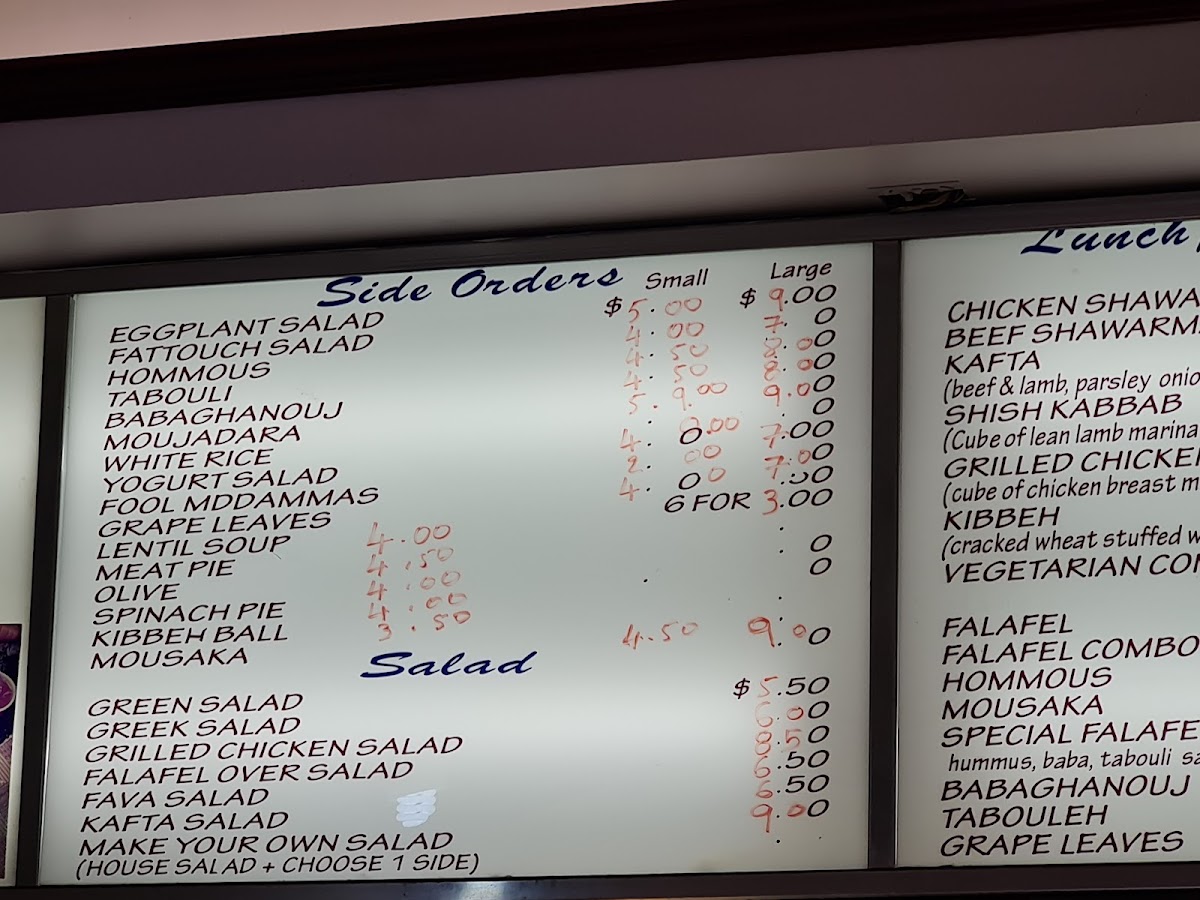 Side Orders Small Large
EGGPLANT SALAD $5.00 $9.00
FATTOUCH SALAD 4.00 7. 0
HOMMOUS 4.50 8.00
TABOULI 4.50 8.00
BABAGHANOUJ 5. 9.00 9.00
MOUJADARA
WHITE RICE 4. 7.00
YOGURT SALAD 2.00 7.00
FOOL MDDAMMAS 4.00
GRAPE LEAVES 6 FOR 3.00
LENTIL SOUP 4.00
MEAT PIE 4.50
OLIVE 4.00
SPINACH PIE 4.00
KIBBEH BALL 3.50
MOUSAKA 4.50 9.00
Salad
GREEN SALAD $5.50
GREEK SALAD 6.00
GRILLED CHICKEN SALAD 8.50
FALAFEL OVER SALAD 6.50
FAVA SALAD 6.50
KAFTA SALAD 9.00
MAKE YOUR OWN SALAD
(HOUSE SALAD + CHOOSE 1 SIDE)
Lunch
CHICKEN SHAWA
BEEF SHAWARM
KAFTA
(beef & lamb, parsley onio
SHISH KABBAB
(Cube of lean lamb marina
GRILLED CHICKEN
(cube of chicken breast m
KIBBEH
(cracked wheat stuffed w
VEGETARIAN COM
FALAFEL
FALAFEL COMBO
HOMMOUS
MOUSAKA
SPECIAL FALAFE
hummus, baba, tabouli sa
BABAGHANOUJ
TABOULEH
GRAPE LEAVES